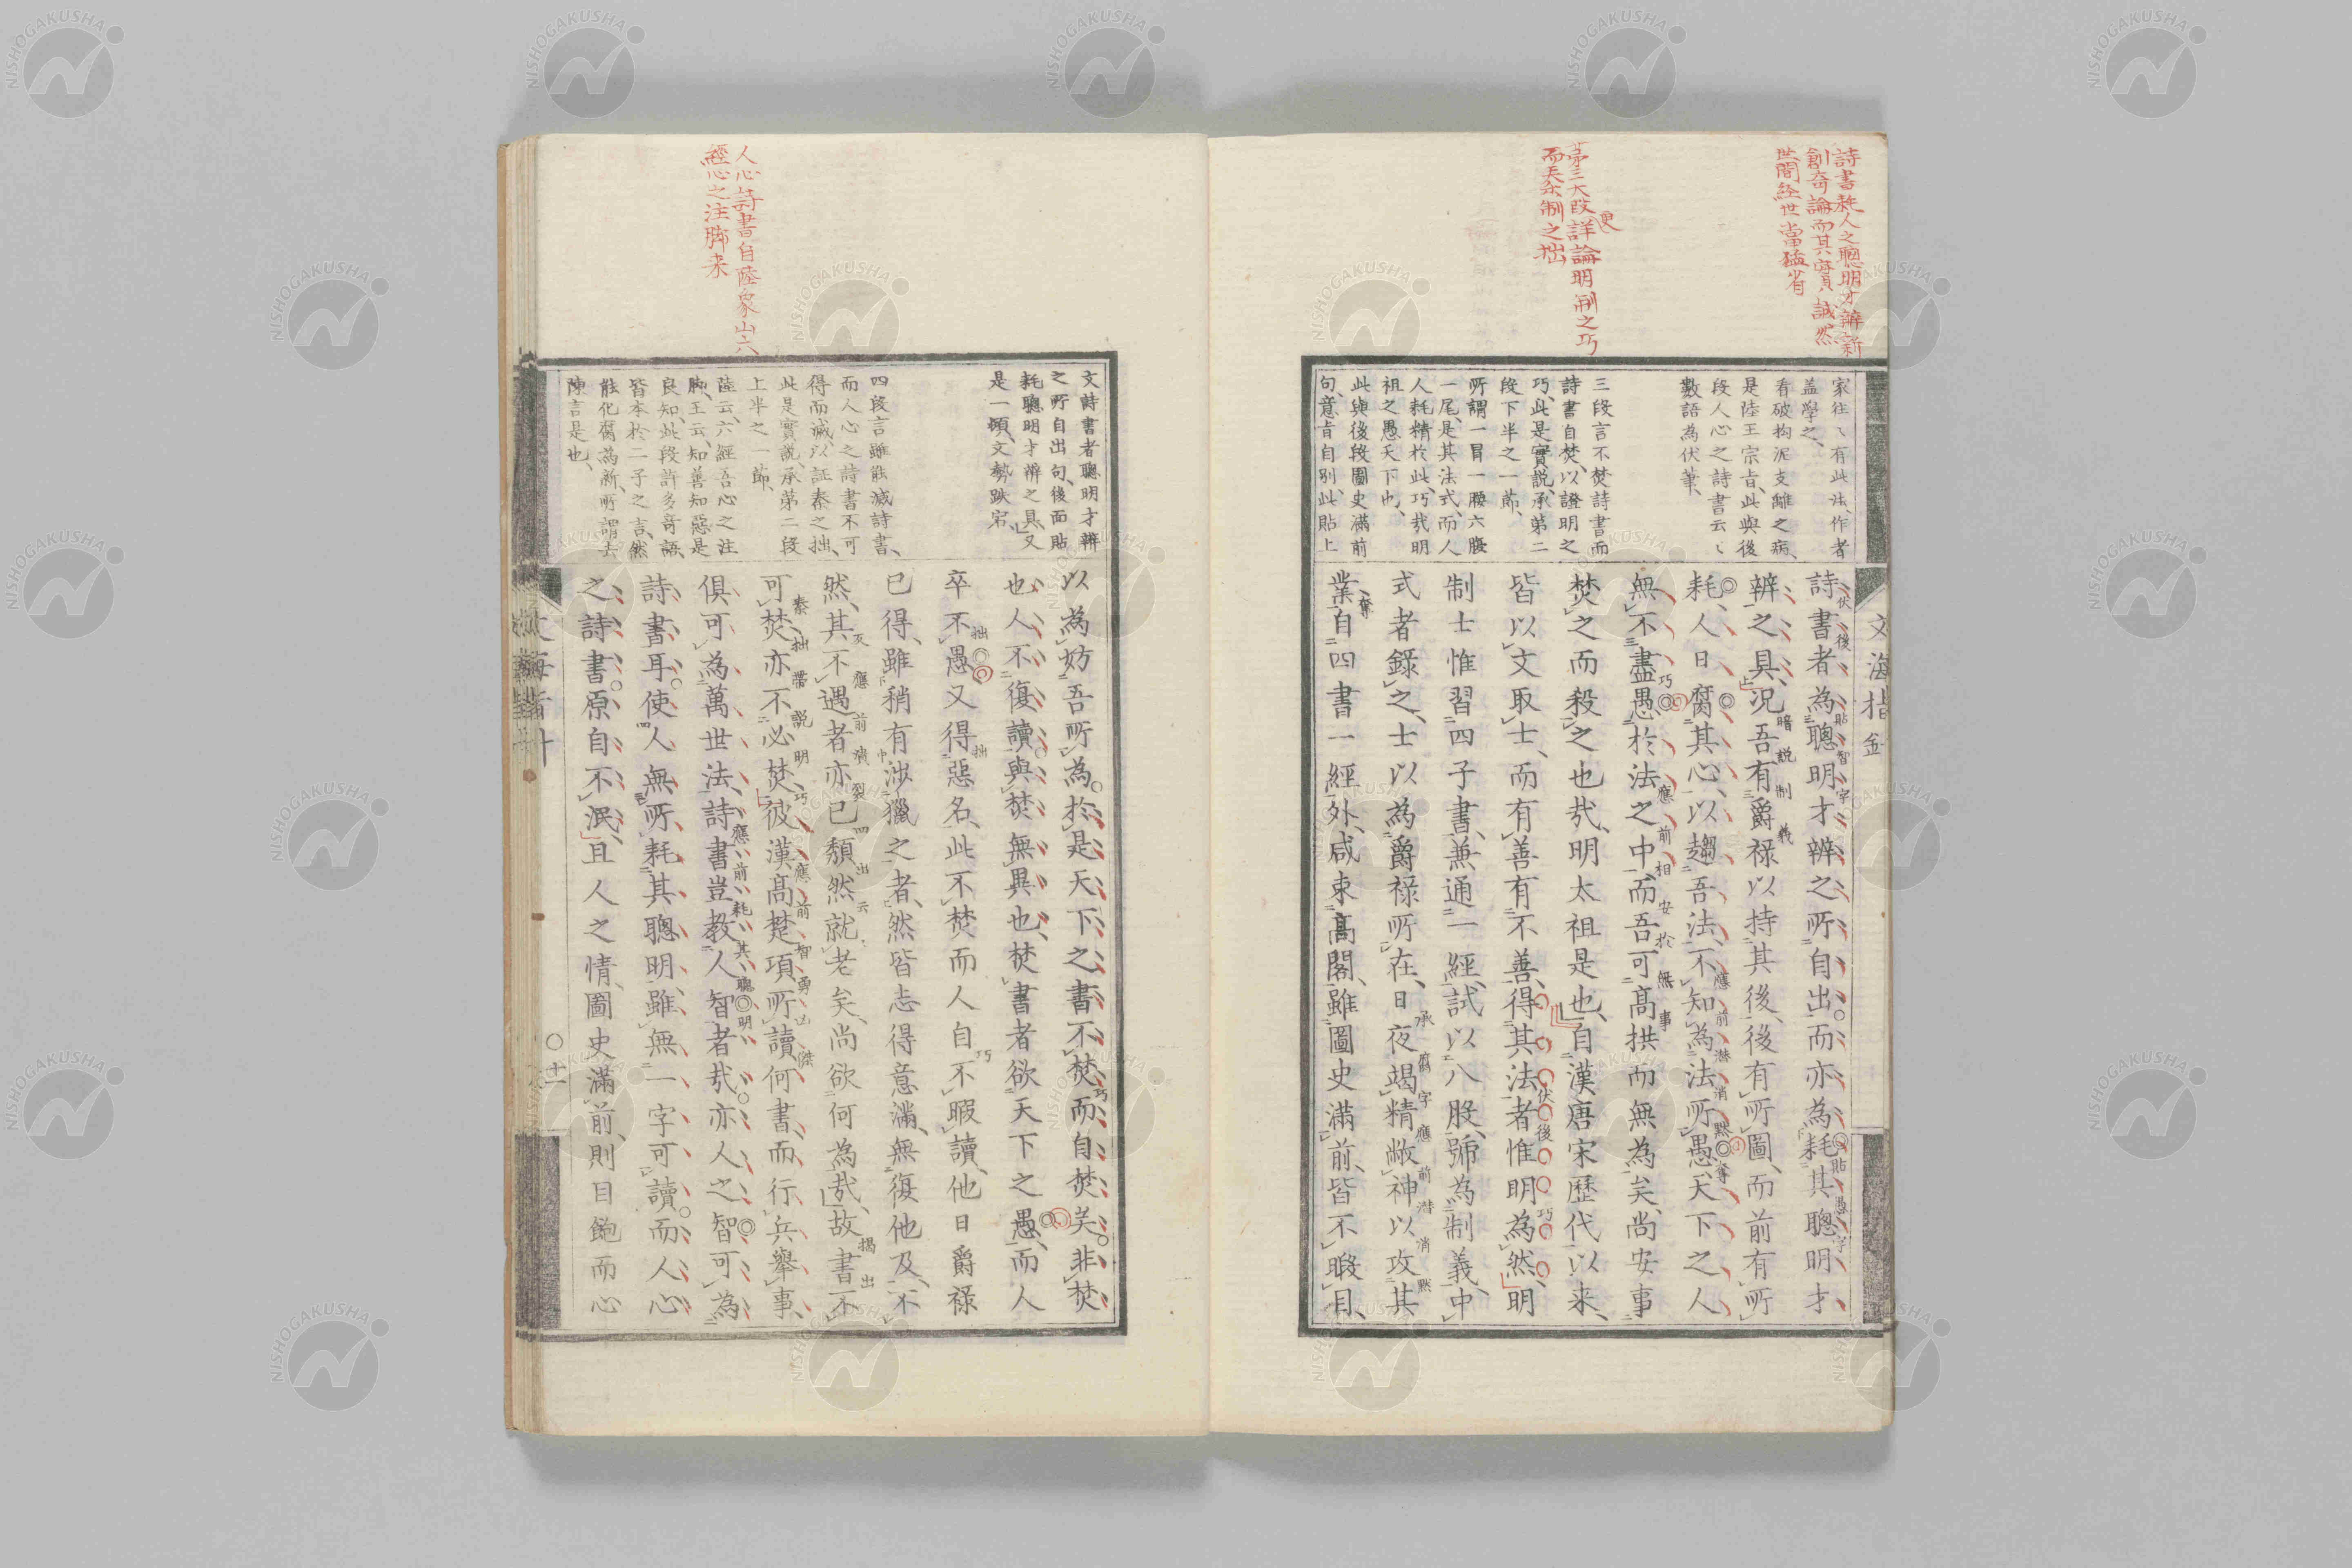 詩書耗人之聰明才辨新
創奇論而其實誠然
世間経世當猛省
第三大段詳論明制之巧
更
而夫秦制之拙
家往々有此法、作者
盖學之、
看破拘泥支離之病、
是陸王宗旨、此與後
段人心之詩書云々
數語為伏筆、
三段言不焚詩書而
詩書自焚、以證明之
巧、此是實説、承第二
段下半之一節、
所謂一冒一腰六腹
一尾、是其法式、而人
人耗精於此、巧哉明
祖之愚天下也、
此與後段圖史滿前
句、意旨自别、此貼上
詩書者為聰明才辨之所自出而亦為耗其聰明才
辨之具、况吾有爵禄以持其後、後有所圖、而前有所
耗、人日腐其心、以趨吾法、不知為法所愚、天下之人
無不盡愚於法之中、而吾可髙拱而無為矣、尚安事
焚之而殺之也哉、明太祖是也、自漢唐宋歴代以来、
皆以文取士、而有善有不善、得其法者惟明為然、明
制士惟習四子書、兼通一經、試以八股、號為制義、中
式者錄之、士以為爵禄所在、日夜竭精敝神以攻其
業、自四書一經外、咸束髙閣、雖圖史滿前、皆不暇目、
伏後
貼智字
貼愚字
暗説制義
應前潜消黙奪
巧
應前相安於無事
伏後巧
承腐字應前潜消黙
奪
文海指針
人心詩書自陸象山六
經心之注脚来
文詩書者聰明才辨
之所自出句、後面貼
耗聰明才辨之具、又
是一頓、文勢跌宕、
四段言雖能滅詩書、
而人心之詩書不可
得而滅、以証秦之拙、
此是實説、承第二段
上半之一節、
陸云、六經吾心之注
脚、王云、知善知惡是
良知、此段許多奇語、
皆本於二子之言、然
能化腐為新、所謂去
陳言是也、
以為妨吾所為、於是天下之書不焚而自焚矣、非焚
也、人不復讀、與焚無異也、焚書者欲天下之愚、而人
卒不愚、又得惡名、此不焚而人自不暇讀、他日爵禄
已得、雖稍有涉獵之者、然皆志得意滿、無復他及、不
然、其不遇者亦已頽然就老矣、尚欲何為哉、故書不
可焚亦不必焚、彼漢髙楚項所讀何書、而行兵舉事、
俱可為萬世法、詩書豈教人智者哉、亦人之智可為
詩書耳、使人無所耗其聰明、雖無一字可讀、而人心
之詩書原自不泯、且人之情、圖史滿前、則目飽而心
巧
拙
拙
巧
應前潰裂四出云々
揭出
秦拙帶説明巧
應前智勇凶傑
應前耗其聰明
十一